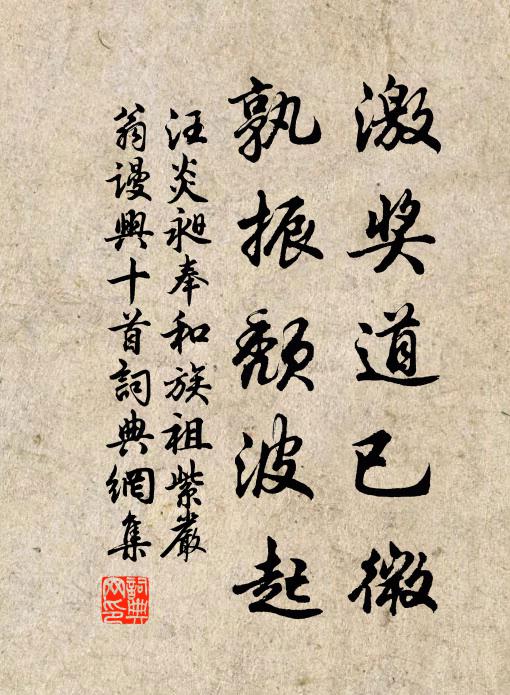 激奖道已微
孰振颓波起
汪炎昶奉和族祖紫严
翁谩兴十首词典网集
词典网印